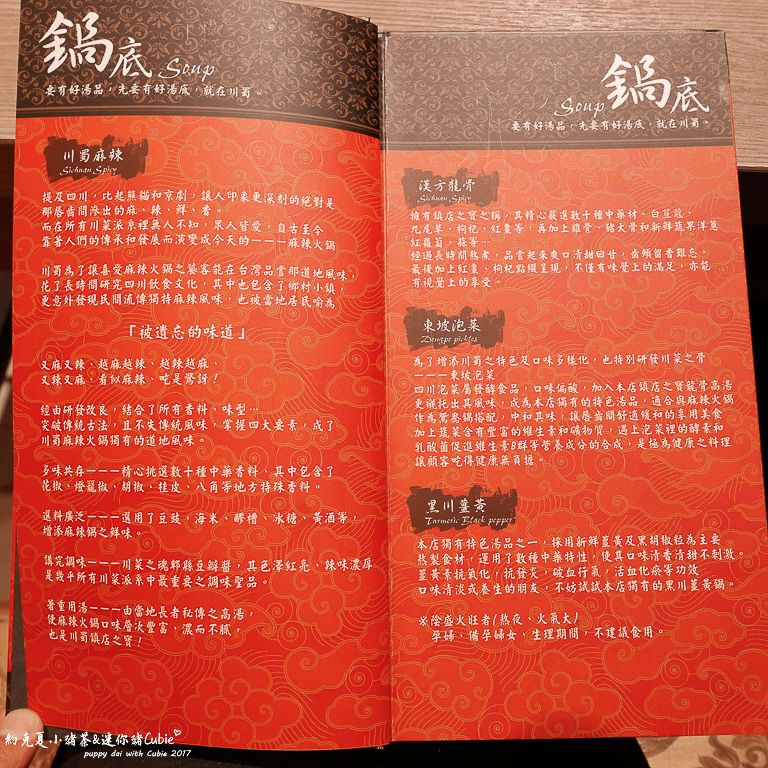 鍋底 Soup
要有好湯品，先要有好湯底，就在川蜀。
川蜀麻辣
Sichuan Spicy
提及四川，比起熊貓和京劇，讓人印象更深刻的絕對是
那唇齒間滲出的麻、辣、鮮、香。
而在所有川菜派系裡無人不知，眾人皆愛，自古至今
靠著人們的傳承和發展而演變成今天的———麻辣火鍋
川蜀為了讓喜愛麻辣火鍋之饕客能在台灣品嘗那道地風味，
花了長時間研究四川飲食文化，其中也包含了鄉村小鎮，
更意外發現民間流傳獨特麻辣風味，也被當地居民喻為
「被遺忘的味道」
又麻又辣、越麻越辣、越辣越麻、
又辣又麻、看似麻辣、吃是驚訝！
經由研發改良，結合了所有香料、味型…
突破傳統古法，且不失傳統風味，掌握四大要素，成了
川蜀麻辣火鍋獨有的道地風味。
多味共存———精心挑選數十種中藥香料、其中包含了
花椒、燈籠椒、胡椒、桂皮、八角等地方特殊香料。
選料廣泛———選用了豆豉、海米、醪糟、冰糖、黃酒等，
增添麻辣鍋之鮮味。
講究調味———川菜之魂郫縣豆瓣醬，其色澤紅亮、辣味濃厚
是幾乎所有川菜派系中最重要之調味聖品。
著重用湯———由當地長者秘傳之高湯，
使麻辣火鍋口味層次豐富、濃而不膩，
也是川蜀鎮店之寶！
Soup 鍋底
要有好湯品，先要有好湯底，就在川蜀。
漢方龍骨
Sichuan Spicy
擁有鎮店之寶之稱，其精心嚴選數十種中藥材、白荳蔻、
九尾草、枸杞、紅棗等，再加上雞骨、豬大骨和新鮮蔬果洋蔥
紅蘿蔔、蒜等…
經過長時間熬煮，品嘗起來爽口清甜回甘，齒頰留香難忘，
最後加上紅棗、枸杞點綴呈現，不僅有味覺上的滿足，亦能
有視覺上的享受。
東坡泡菜
Dongpo pickles
為了增添川蜀之特色及口味多樣化，也特別研發川菜之骨
———東坡泡菜
四川泡菜屬發酵食品，口味偏酸，加入本店鎮店之寶龍骨高湯
更襯托出其風味，成為本店獨有的特色湯品，適合與麻辣火鍋
作為鴛鴦鍋搭配，中和其味，讓唇齒間舒適緩和的享用美食
加上蔬菜含有豐富的維生素和礦物質，遇上泡菜裡的酵素和
乳酸菌促進維生素B群等營養成分的合成，是極為健康之料理
讓顧客吃得健康無負擔。
黑川薑黃
Turmeric Black pepper
本店獨有特色湯品之一，採用新鮮薑黃及黑胡椒粒為主要
熬製食材，運用了數種中藥特性，使其口味清香清甜不刺激。
薑黃素抗氧化，抗發炎，破血行氣，活血化瘀等功效
口味清淡或養生的朋友，不妨試試本店獨有的黑川薑黃鍋。
※陰盛火旺者(熬夜、火氣大)
孕婦、備孕婦女、生理期間，不建議食用。
約克夏小豬茶&迷你豬Cubie
puppy dai with Cubie 2017